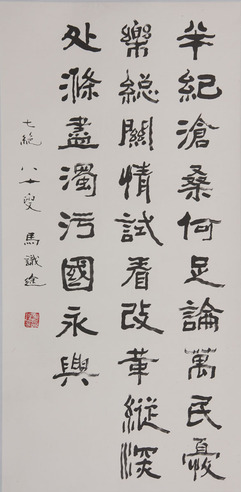 半紀滄桑何足論萬民憂
樂總關情試看改革縱深
处滌盡濁污國永興
七絕 八十叟 馬識途